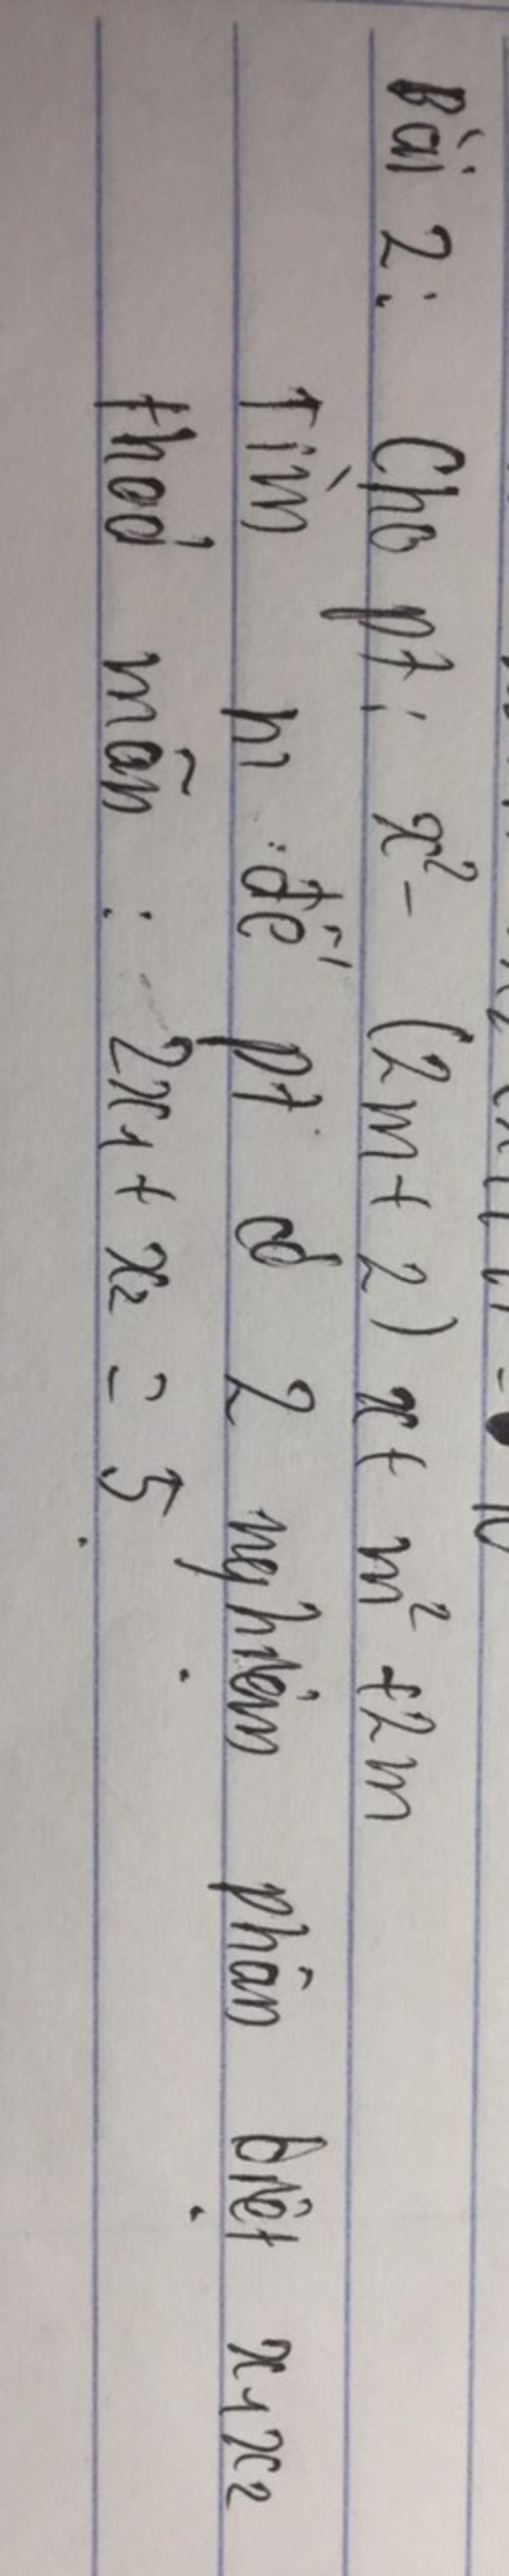 Bài 2: Cho pt: x² - (2m + 2) x + m² + 2m
Tìm m để pt có 2 nghiệm phân biệt x₁x₂
thoả mãn : 2x₁ + x₂ = 5